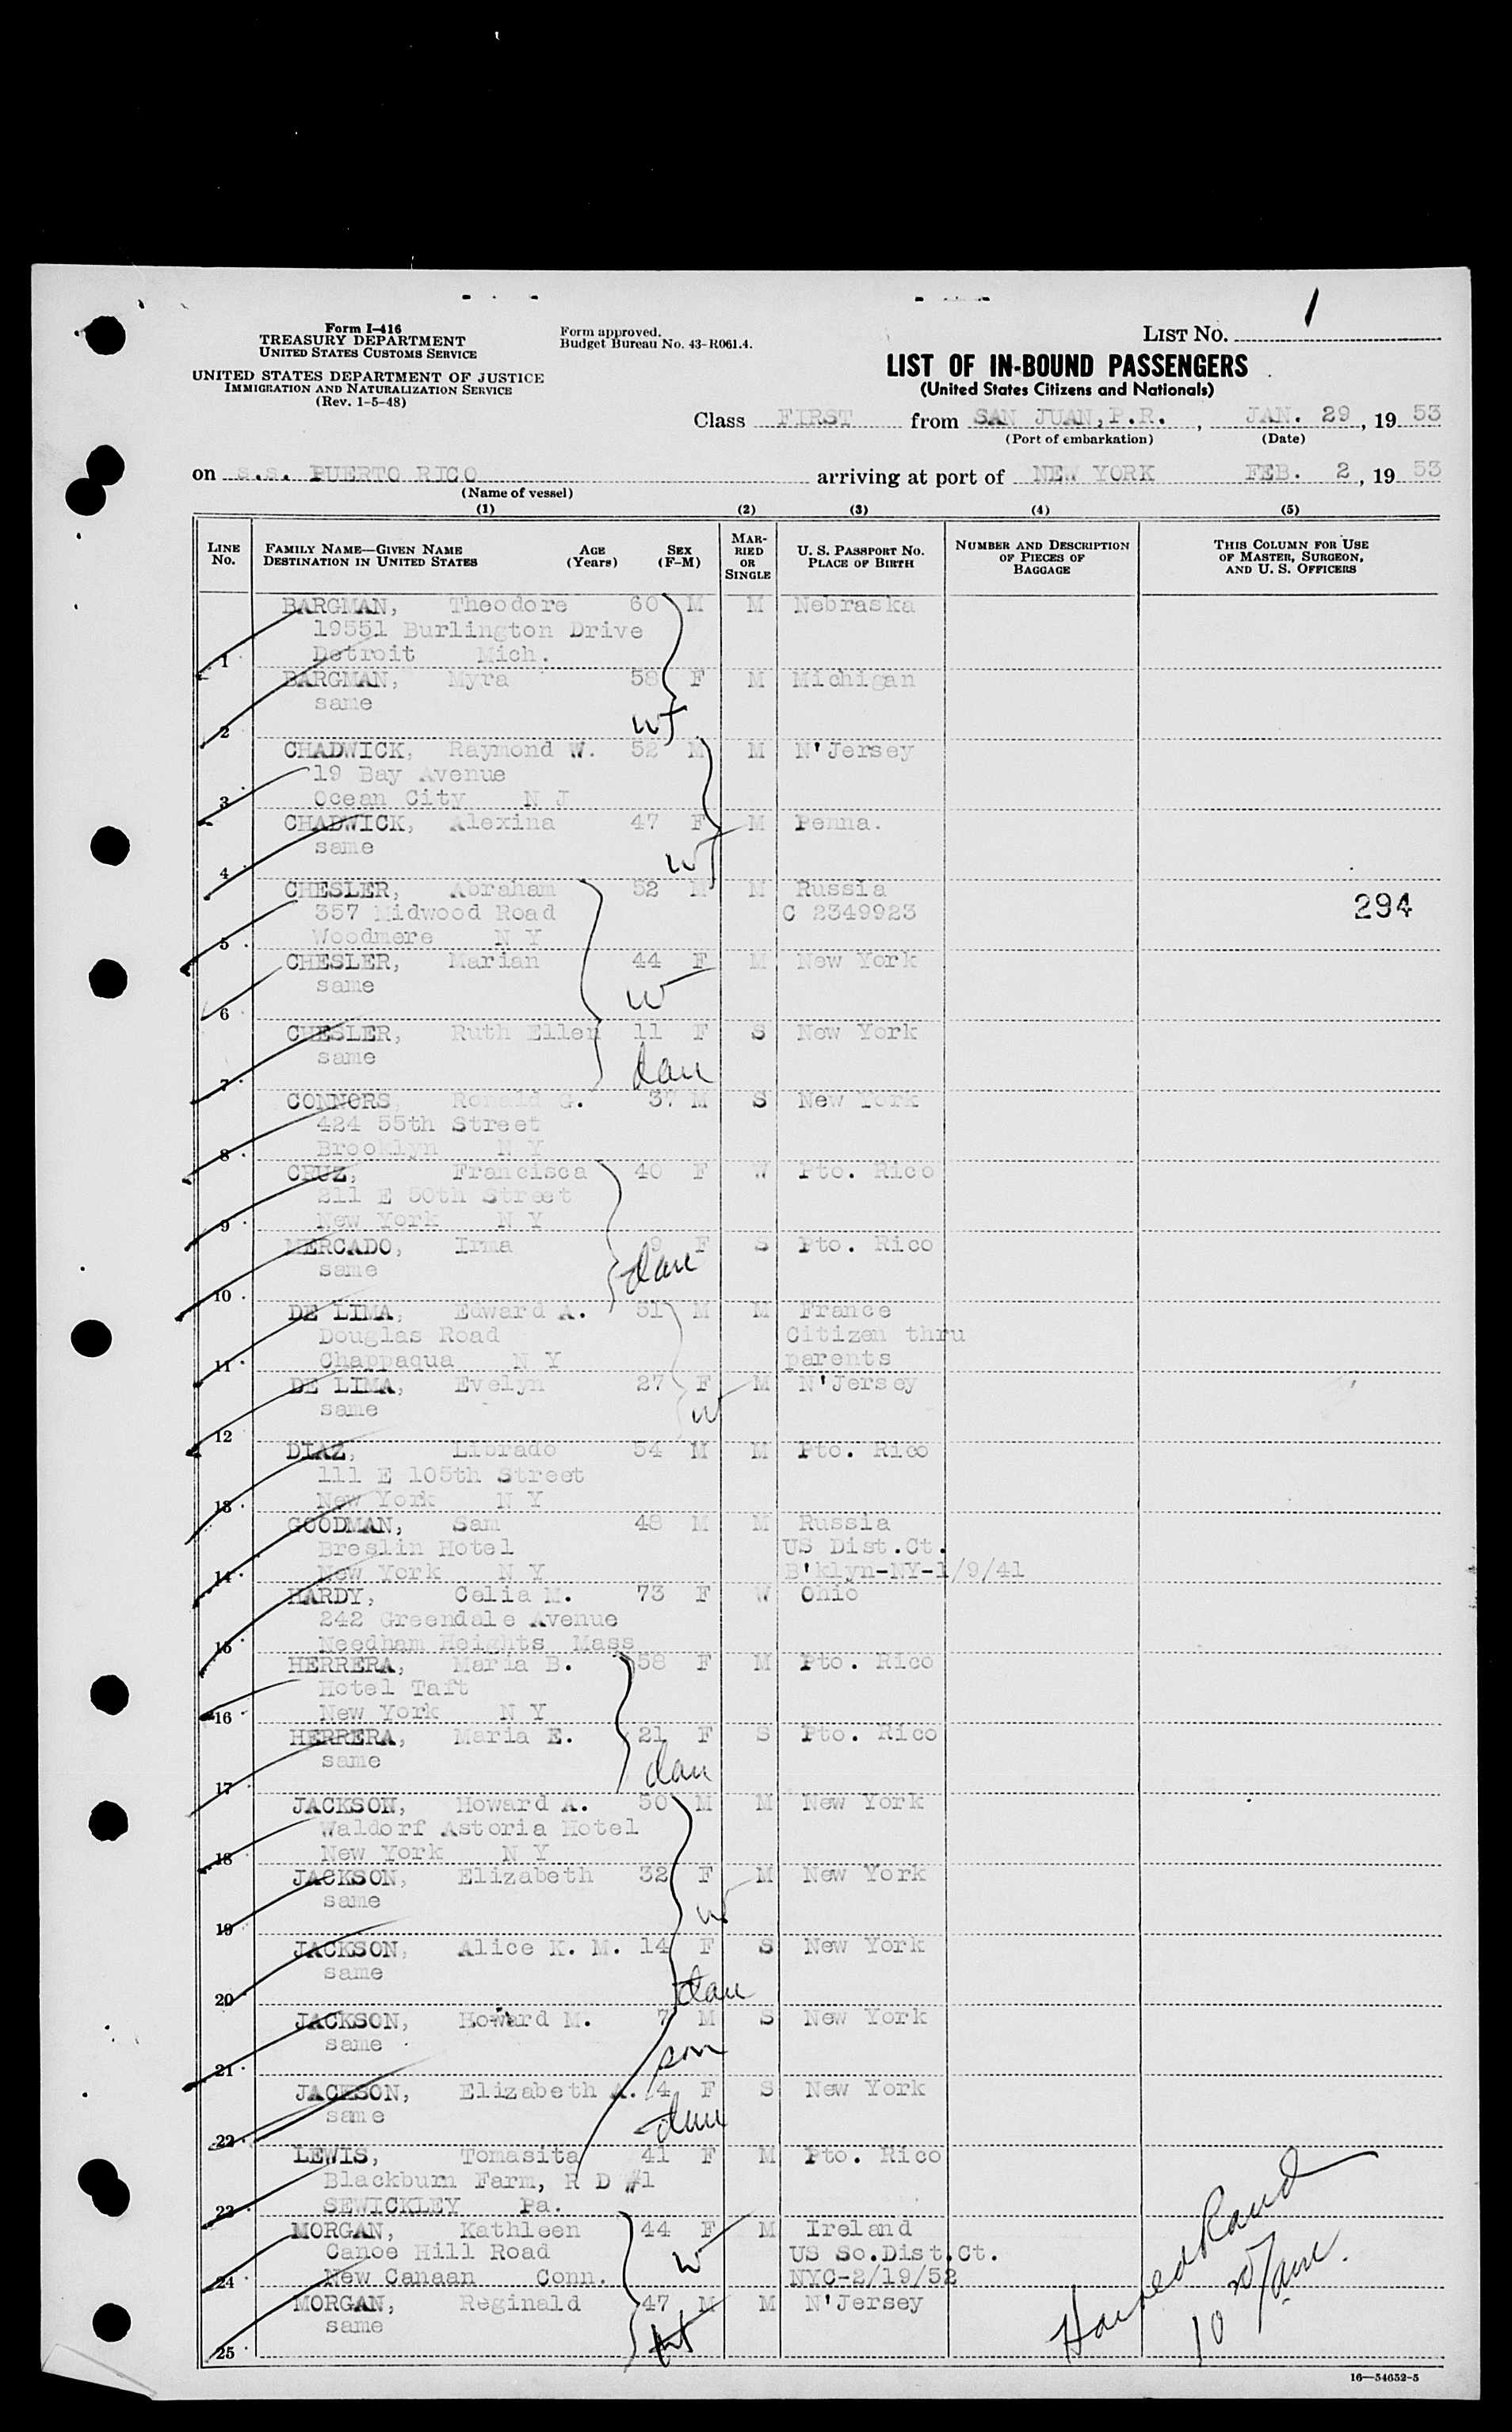 1
Form I-416
TREASURY DEPARTMENT
UNITED STATES CUSTOMS SERVICE
UNITED STATES DEPARTMENT OF JUSTICE
IMMIGRATION AND NATURALIZATION SERVICE
(Rev. 1-5-48)
Form approved.
Budget Bureau No. 43-R061.4.
LIST NO.
LIST OF IN-BOUND PASSENGERS
(United States Citizens and Nationals)
Class FIRST from SAN JUAN, P.R., JAN. 29, 19 53
(Port of embarkation) (Date)
on s.s. PUERTO RICO arriving at port of NEW YORK FEB. 2, 19 53
(Name of vessel)
(1) (2) (3) (4) (5)
LINE NO. FAMILY NAME—GIVEN NAME DESTINATION IN UNITED STATES AGE (Years) SEX (F-M) MARRIED OR SINGLE U. S. PASSPORT NO. PLACE OF BIRTH NUMBER AND DESCRIPTION OF PIECES OF BAGGAGE THIS COLUMN FOR USE OF MASTER, SURGEON, AND U. S. OFFICERS
BARGMAN, Theodore 60 M M Nebraska
19551 Burlington Drive
1 Detroit Mich.
BARGMAN, Myra 58 F M Michigan
same
2 wf
CHADWICK, Raymond W. 52 M M N'Jersey
19 Bay Avenue
3 Ocean City N J
CHADWICK, Alexina 47 F M Penna.
same
4 wf
CHESLER, Abraham 52 M M Russia
357 Midwood Road C 2349923 294
5 Woodmere N Y
CHESLER, Marian 44 F M New York
same
6 w
CHESLER, Ruth Ellen 11 F S New York
same
7 dau
CONNORS, Ronald G. 37 M S New York
424 55th Street
8 Brooklyn N Y
CRUZ, Francisca 40 F W Pto. Rico
211 E 50th Street
9 New York N Y
MERCADO, Irma 9 F S Pto. Rico
same dau
10
DE LIMA, Edward A. 51 M M France
Douglas Road Citizen thru
11 Chappaqua N Y parents
DE LIMA, Evelyn 27 F M N'Jersey
same w
12
DIAZ, Librado 54 M M Pto. Rico
111 E 105th Street
13 New York N Y
GOODMAN, Sam 48 M M Russia
Breslin Hotel US Dist.Ct.
14 New York N Y B'klyn-NY-1/9/41
HARDY, Celia M. 73 F W Ohio
242 Greendale Avenue
15 Needham Heights Mass
HERRERA, Maria B. 58 F M Pto. Rico
Hotel Taft
16 New York N Y
HERRERA, Maria E. 21 F S Pto. Rico
same dau
17
JACKSON, Howard A. 50 M M New York
Waldorf Astoria Hotel
18 New York N Y
JACKSON, Elizabeth 32 F M New York
same w
19
JACKSON, Alice K. M. 14 F S New York
same dau
20
JACKSON, Howard M. 7 M S New York
same son
21
JACKSON, Elizabeth A. 4 F S New York
same dau
22
LEWIS, Tomasita 41 F M Pto. Rico
Blackburn Farm, R D #1
23 SEWICKLEY Pa.
MORGAN, Kathleen 44 F M Ireland
Canoe Hill Road w US So.Dist.Ct.
24 New Canaan Conn. NYC-2/19/52
MORGAN, Reginald 47 M M N'Jersey
same
25
16—54652-5